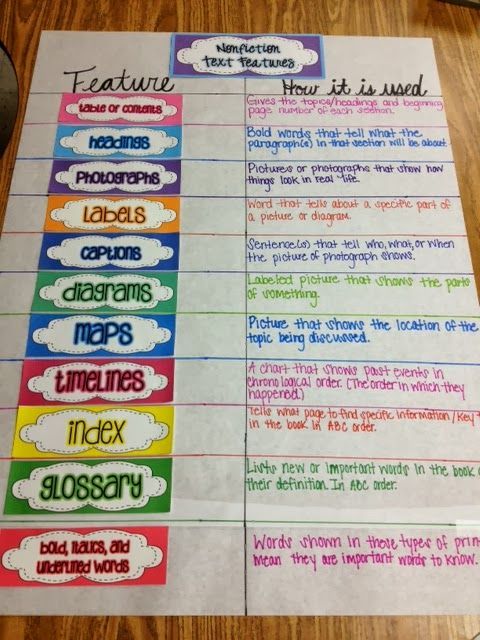 Nonfiction
Text Features
Feature
How it is used
table of contents
Gives the topics/headings and beginning
page number of each section.
headings
Bold words that tell what the
paragraph(s) in that section will be about.
Photographs
Pictures or photographs that show how
things look in real life.
Labels
Word that tells about a specific part of
a picture or diagram.
captions
Sentence(s) that tell who, what, or when
the picture of photograph shows.
diagrams
Labeled picture that shows the parts
of something.
maps
Picture that shows the location of the
topic being discussed.
timelines
A chart that shows past events in
chronological order. (The order in which they
happened.)
index
Tells what page to find specific information/key
in the book in ABC order.
glossary
Lists new or important words in the book
their definition. In ABC order.
bold, italics, and
underlined words
Words shown in these types of
mean they are important words to know.